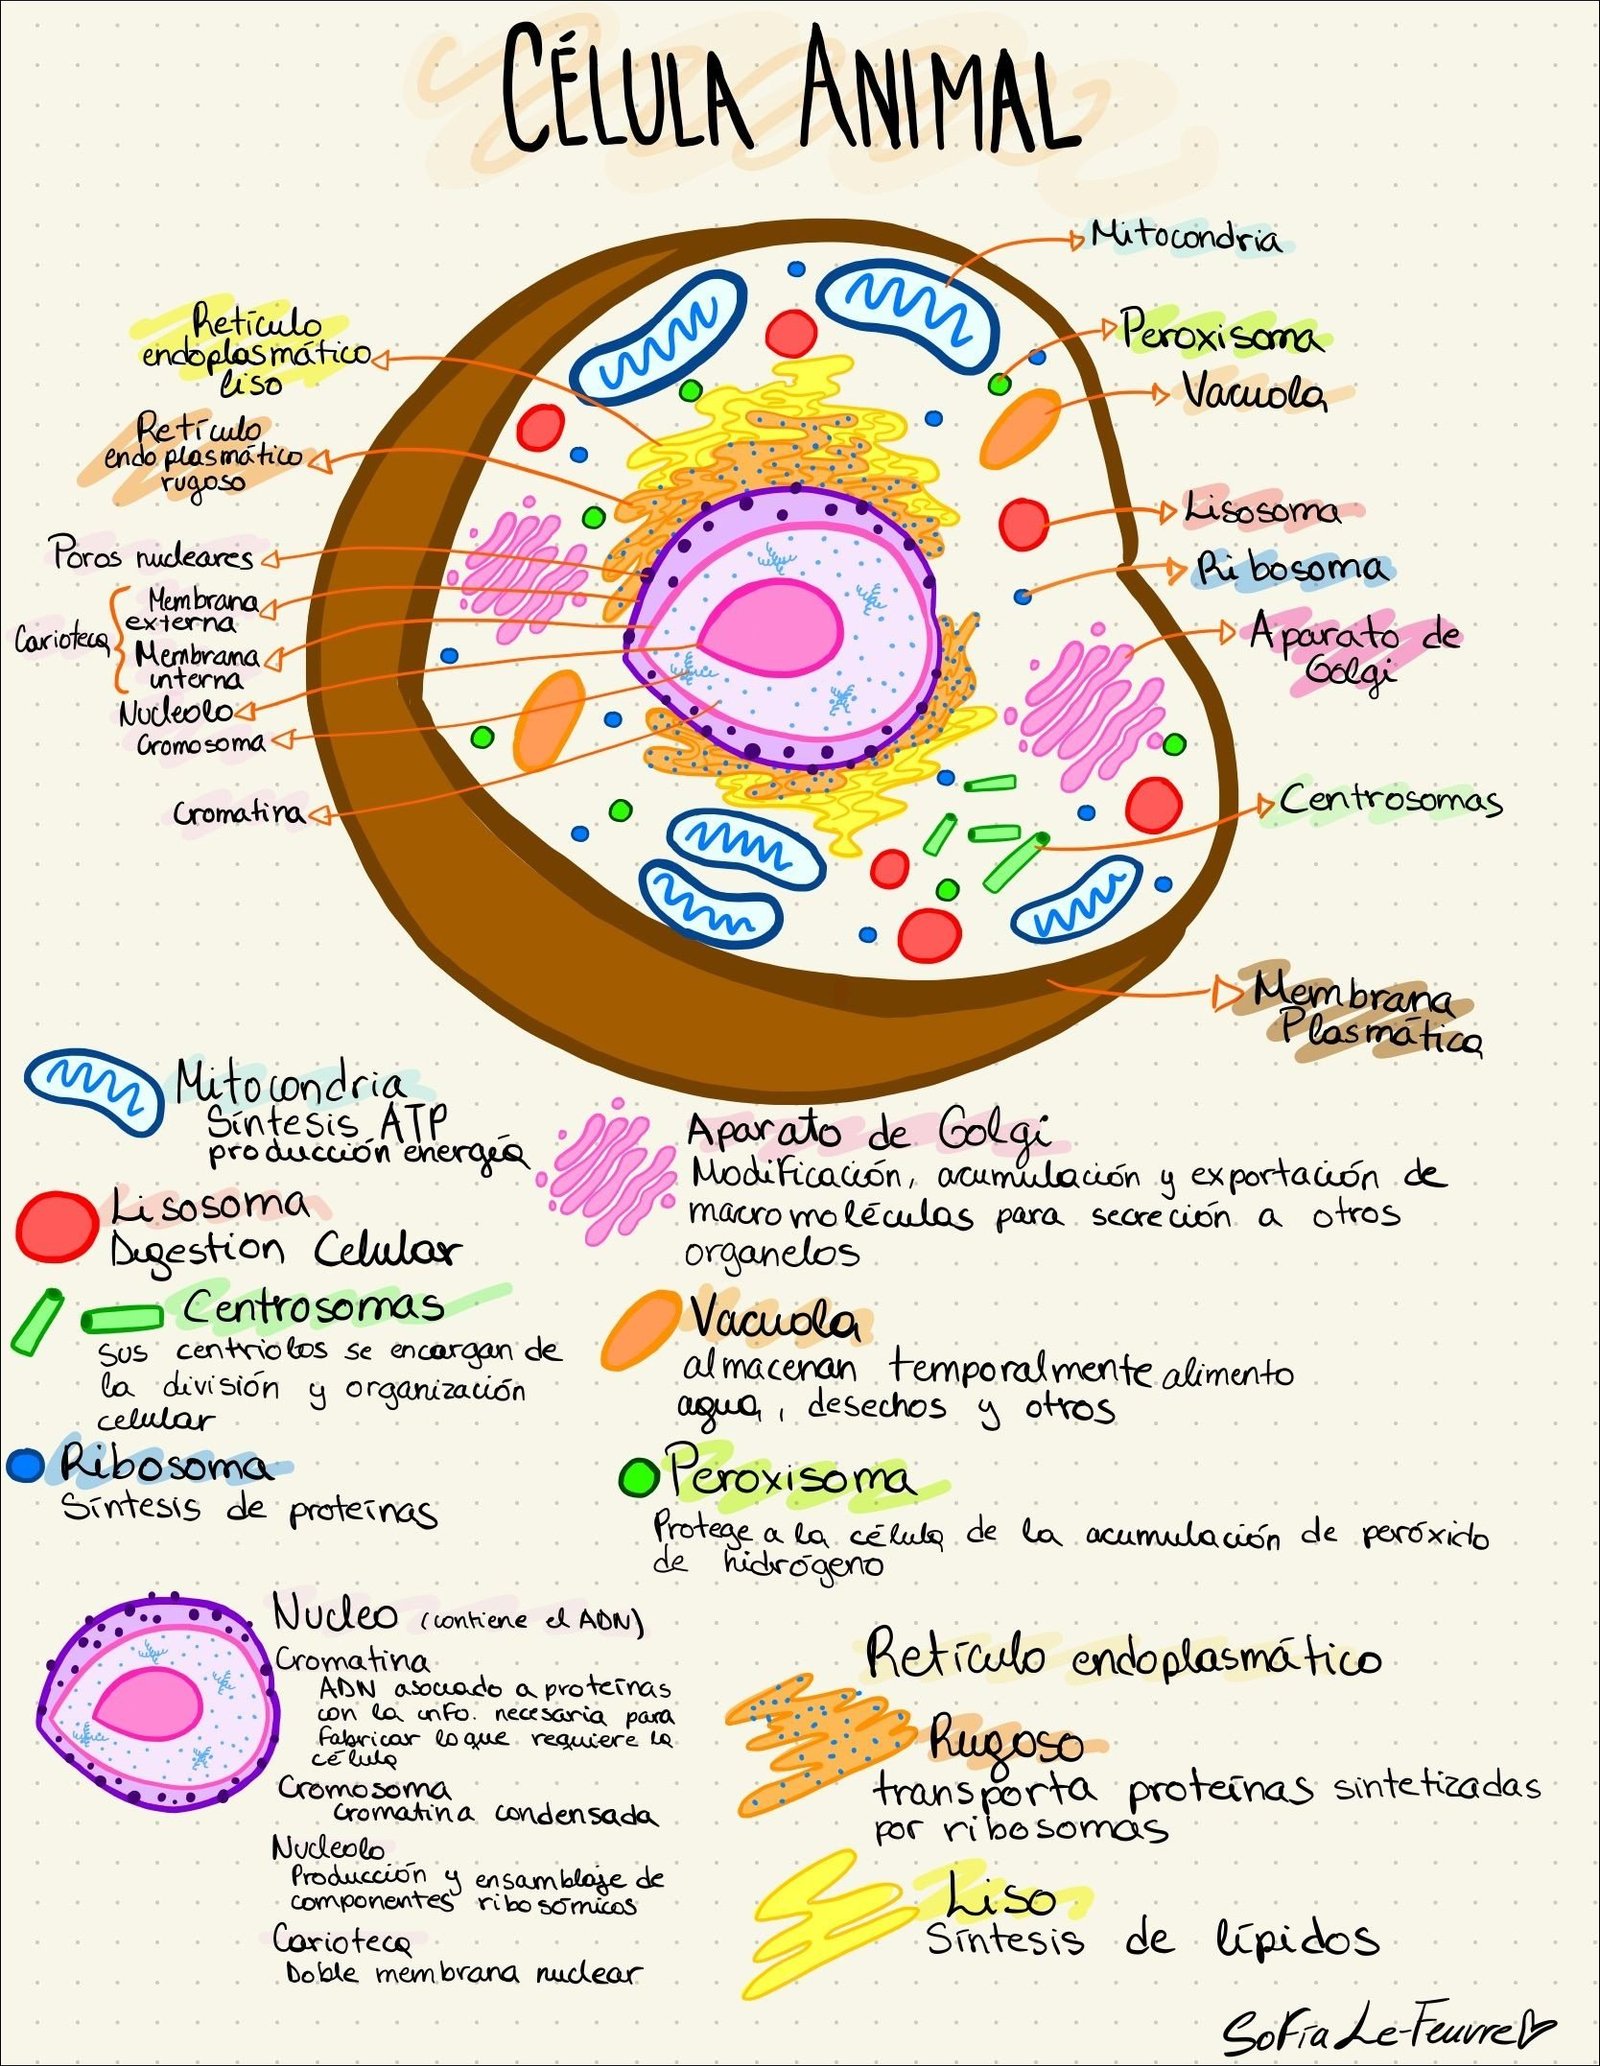 CÉLULA ANIMAL
Mitocondria
Peroxisoma
Vacuola
Lisosoma
Ribosoma
Aparato de
Golgi
Centrosomas
Membrana
Plasmática
Retículo
endoplasmático
liso
Retículo
endoplasmático
rugoso
Poros nucleares
Carioteca
Membrana
externa
Membrana
interna
Nucleolo
Cromosoma
Cromatina
Mitocondria
Síntesis ATP
producción energía
Lisosoma
Digestion Celular
Centrosomas
sus centriolos se encargan de
la división y organización
celular
Ribosoma
Síntesis de proteínas
Aparato de Golgi
Modificación, acumulación y exportación de
macromoléculas para secreción a otros
organelos
Vacuola
almacenan temporalmente alimento
agua, desechos y otros
Peroxisoma
Protege a la célula de la acumulación de peróxido
de hidrógeno
Nucleo (contiene el ADN)
Cromatina
ADN asociado a proteínas
con la info. necesaria para
fabricar lo que requiere la
célula
Cromosoma
Cromatina condensada
Nucleolo
Producción y ensamblaje de
componentes ribosómicos
Carioteca
Doble membrana nuclear
Retículo endoplasmático
Rugoso
transporta proteínas sintetizadas
por ribosomas
Liso
Síntesis de lípidos
Sofía Le-Feuvre